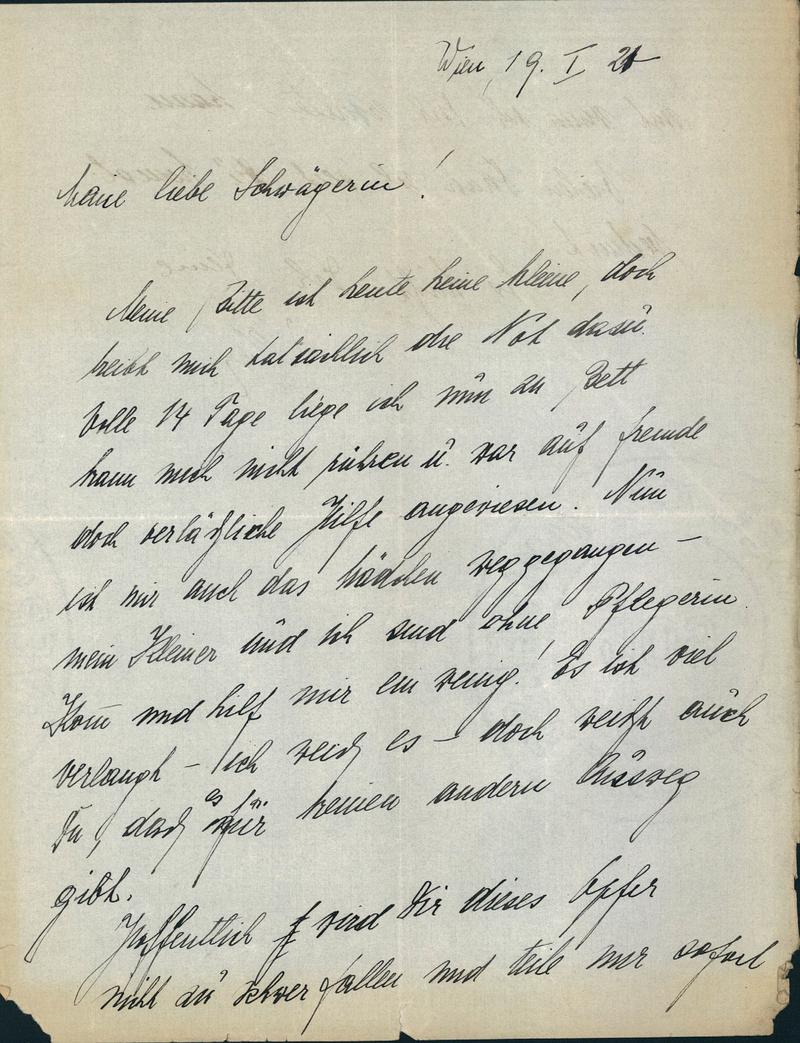 Wien, 19. I 21
Meine liebe Schwägerin!
Meine Bitte ist heute keine kleine, doch
treibt mich tatsächlich die Not dazu.
Volle 14 Tage liege ich nun zu Bett
kann mich nicht rühren u. war auf fremde
doch verläßliche Hilfe angewiesen. Nun
ist mir auch das Mädchen weggegangen –
mein Kleiner und ich sind ohne Pflegerin.
Kom̄ und hilf mir ein wenig! Es ist viel
verlangt – ich weiß es – doch weißt auch
Du, daß es für keinen andern Ausweg
gibt.
Hoffentlich wird Dir dieses Opfer
nicht zu schwer fallen und teile mir sofort